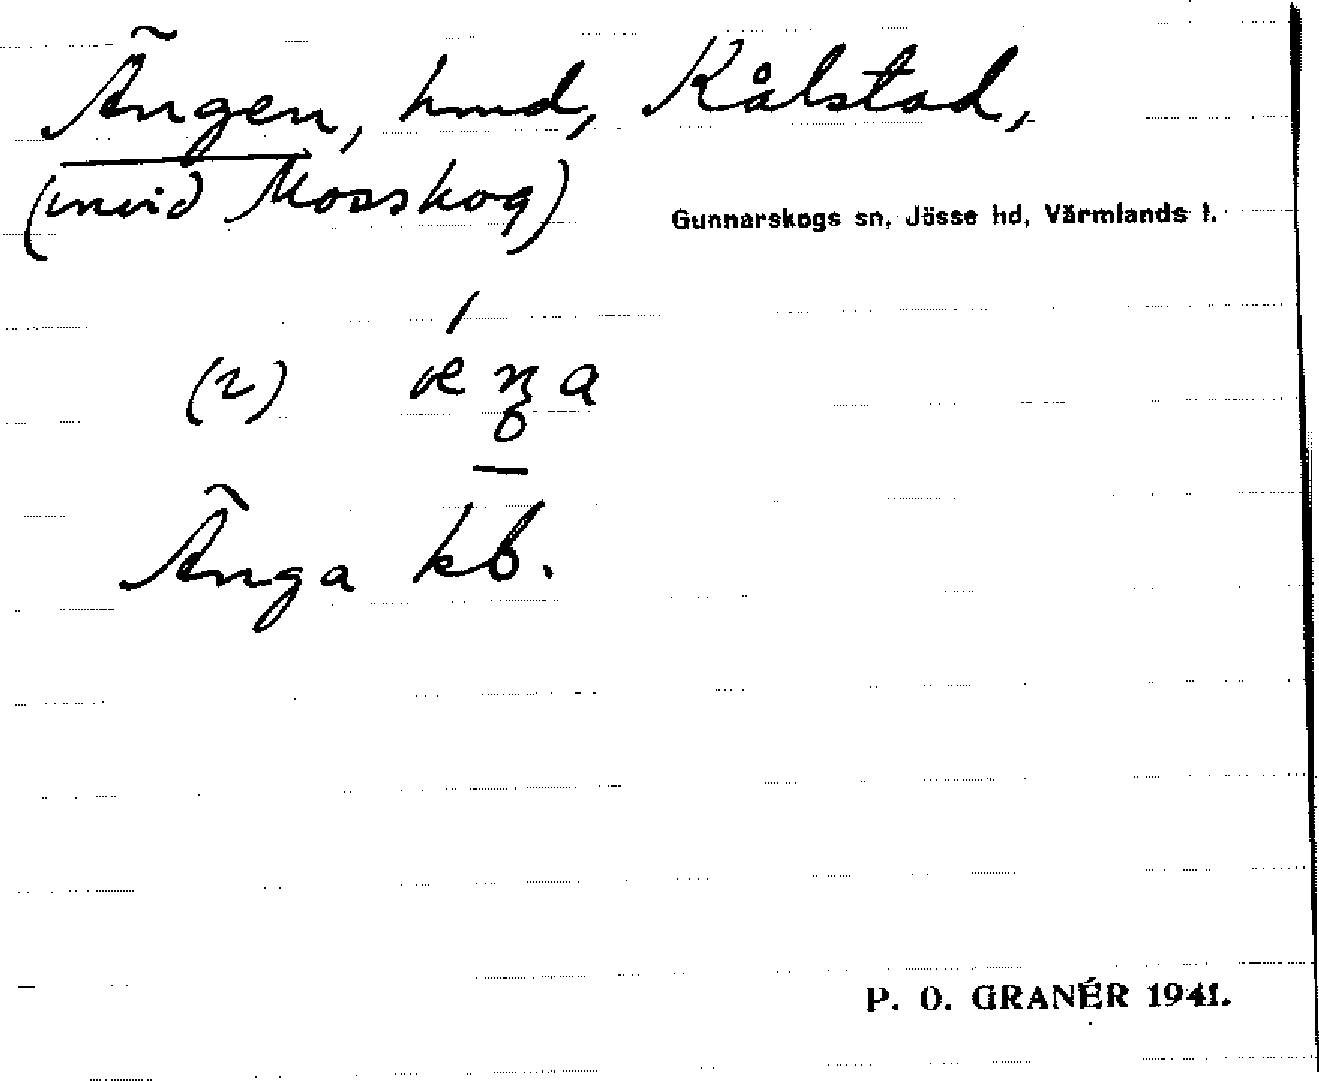 Ängen, hmd, Kålstad,
(invid Mosskog)
Gunnarskogs sn, Jösse hd, Värmlands l.
(2)
Änga kb.
P. O. GRANÉR 1941.